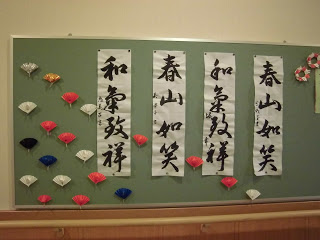 春山如笑
和氣致祥
春山如笑
和氣致祥